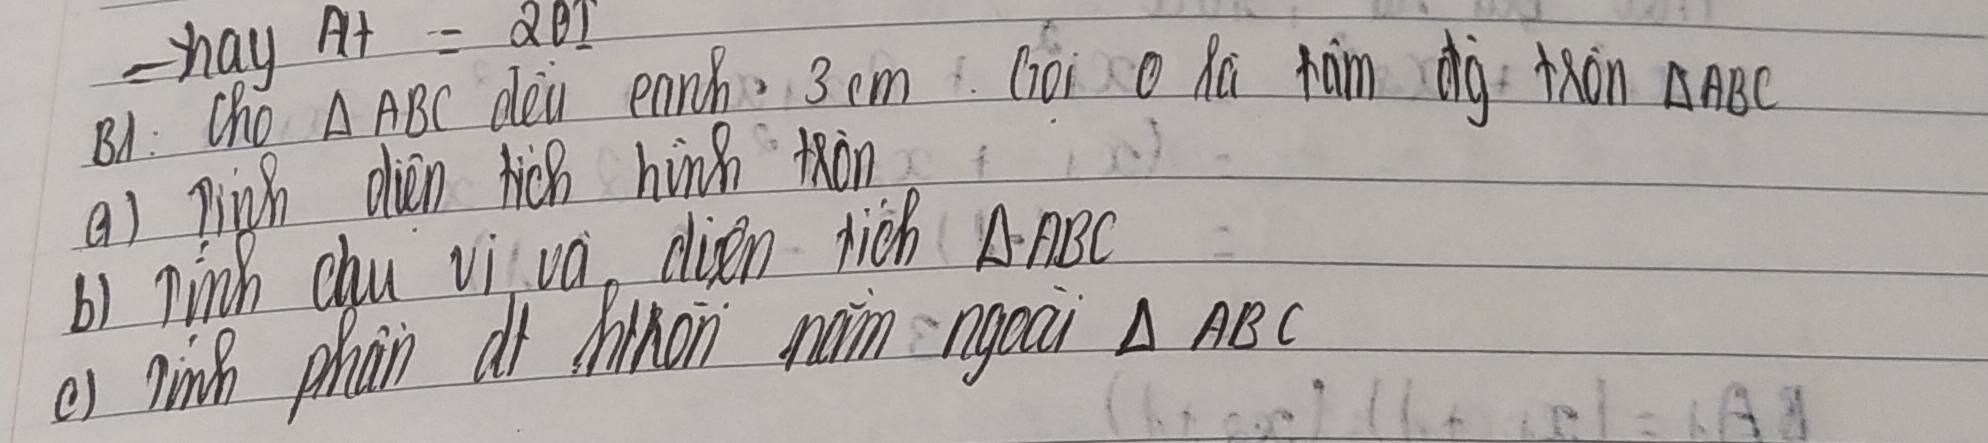 = hay AH = 2OI
B1: Cho Δ ABC đều cạnh 3 cm. Gọi O là tâm đg tròn Δ ABC
a) Tính diện tích hình tròn
b) Tính chu vi và diện tích Δ ABC
c) Tính phần dt htròn nằm ngoài Δ ABC